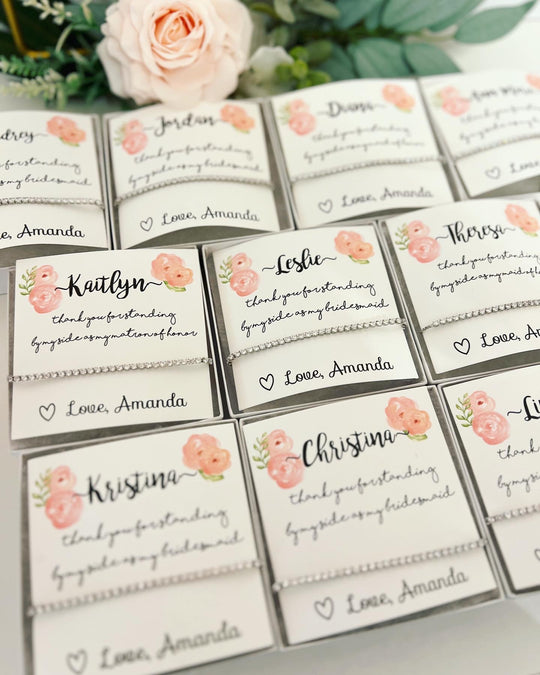 drey
thank you for standing
by my side as my bridesmaid
Love, Amanda
Jordan
thank you for standing
by my side as my bridesmaid
Love, Amanda
Diana
thank you for standing
by my side as my maid of honor
Love, Amanda
thank you for standing
by my side as my
Love,
Kaitlyn
thank you for standing
by my side as my matron of honor
Love, Amanda
Leslie
thank you for standing
by my side as my bridesmaid
Love, Amanda
Theresa
thank you for standing
by my side as my maid of
Love, Amanda
Kristina
thank you for standing
by my side as my bridesmaid
Love, Amanda
Christina
thank you for standing
by my side as my bridesmaid
Love, Amanda
Li
thank you for
by my side as